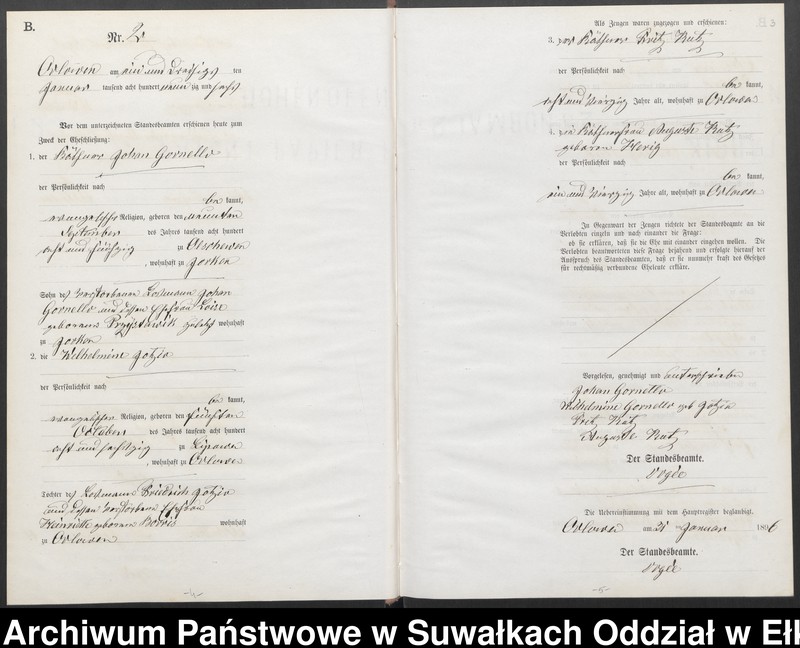 B.
Nr. 2
Orlowen am ein und dreißigs ten
Januar tausend acht hundert neun zig und sechs
Vor dem unterzeichneten Standesbeamten erschienen heute zum
Zweck der Eheschließung:
1. der Käthner Johan Gornello
der Persönlichkeit nach
be kannt,
evangelischer Religion, geboren den neunten
September des Jahres tausend acht hundert
acht und fünfzig zu Olschewen
, wohnhaft zu Jorken
Sohn des verstorbenen Losmann Johan
Gornello und dessen Ehefrau Loise
geborenen Przystawik zuletzt wohnhaft
zu Jorken
2. die Wilhelmine
der Persönlichkeit nach
be kannt,
evangelischen Religion, geboren den fünften
Oktober des Jahres tausend acht hundert
acht und sechszig zu Lipowen
, wohnhaft zu Orlowen
Tochter des Losmann Friedrich
und dessen verstorbene Ehefrau
geborenen wohnhaft
zu Orlowen
Als Zeugen waren zugezogen und erschienen:
3. der Käthner Fritz
der Persönlichkeit nach
be kannt,
acht und vierzig Jahre alt, wohnhaft zu Orlowen
4. die Käthnerfrau Auguste
geboren
der Persönlichkeit nach
be kannt,
ein und vierzig Jahre alt, wohnhaft zu Orlowen
In Gegenwart der Zeugen richtete der Standesbeamte an die
Verlobten einzeln und nach einander die Frage:
ob sie erklären, daß sie die Ehe mit einander eingehen wollen. Die
Verlobten beantworteten diese Frage bejahend und erfolgte hierauf der
Ausspruch des Standesbeamten, daß er sie nunmehr kraft des Gesetzes
für rechtmäßig verbundene Eheleute erkläre.
Vorgelesen, genehmigt und unterschrieben
Johan Gornello
Wilhelmine Gornello geb
Fritz
Auguste
Der Standesbeamte.
Die Uebereinstimmung mit dem Hauptregister beglaubigt.
Orlowen am 31 Januar 1896
Der Standesbeamte.
Archiwum Państwowe w Suwałkach Oddział w Ełk